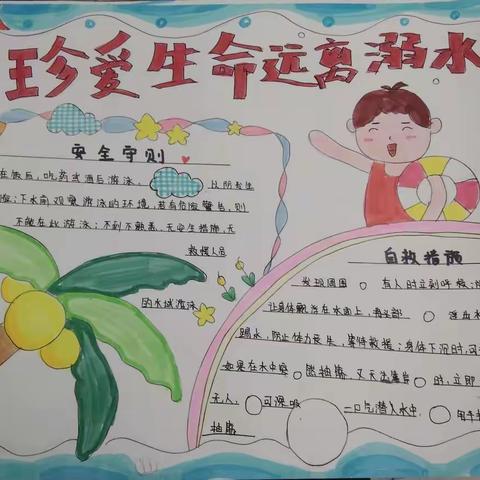 珍爱生命远离溺水
安全守则
在饭后,吃药或酒后游泳, 以防发生
险;下水前观察游泳的环境,若有危险警告,则
不能在此游泳;不到不熟悉、无安全措施、无
救援人员
的水域游泳
自救措施
发现周围 有人时立刻呼救;
让身体漂浮在水面上,将头部 浮出水
踢水,防止体力丧失,等待救援;身体下沉时,可
如果在水中突 然抽筋,又无法靠岸 时,立即
无人, 可深吸 一口气潜入水中,
抽筋